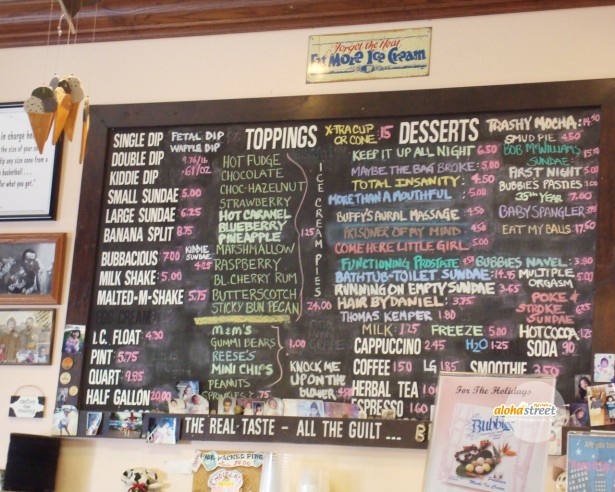 Forget the Heat
Eat More Ice Cream
in charge ha
the size of your sc
dip any size cone from a
basketball ...
for what you get."
SINGLE DIP
DOUBLE DIP
KIDDIE DIP
SMALL SUNDAE 5.00
LARGE SUNDAE 6.25
BANANA SPLIT 8.75
BUBBACIOUS 7.00
MILK SHAKE 5.75
MALTED-M-SHAKE 5.75
I.C. FLOAT 4.30
PINT 5.75
QUART 9.85
HALF GALLON 20.00
FETAL DIP
WAFFLE DIP
KIDDIE
SUNDAE 4.25
TOPPINGS
HOT FUDGE
CHOCOLATE
CHOC-HAZELNUT
STRAWBERRY
HOT CARAMEL
BLUEBERRY
PINEAPPLE
MARSHMALLOW
RASPBERRY
BL. CHERRY RUM
BUTTERSCOTCH
STICKY BUN PECAN
1.25
M&M'S
GUMMI BEARS
REESE'S
MINI CHIPS
PEANUTS
SPRINKLES
1.00
X-TRA CUP
OR CONE .15
ICE CREAM PIES
24.00
KNOCK ME
UP ON THE
BLOWER
DESSERTS
KEEP IT UP ALL NIGHT 6.50
MAYBE THE BAG BROKE 5.00
TOTAL INSANITY 4.50
MORE THAN A MOUTHFUL 5.00
BUFFY'S AURAL MASSAGE 4.50
PRISONER OF MY MIND
COME HERE LITTLE GIRL 5.00
FUNCTIONING PROSTATE 4.50
BATHTUB-TOILET SUNDAE 14.75
RUNNING ON EMPTY SUNDAE 3.65
HAIR BY DANIEL 3.75
THOMAS KEMPER 1.80
MILK 1.25
FREEZE 5.00
CAPPUCCINO 2.45
H2O 1.25
COFFEE 1.50 LG 1.85
SMOOTHIE 3.50
HERBAL TEA 1.00
ESPRESSO 1.60
TRASHY MOCHA
SMUD PIE 4.50
BOB McWILLIAMS
SUNDAE
FIRST NIGHT 5.00
BUBBIE'S PASTIES 7.00
25TH YEAR 7.00
BABY SPANGLER
EAT MY BALLS 17.50
BUBBIES NAVEL 3.80
MULTIPLE 5.00
ORGASM
POKE &
STROKE
SUNDAE
HOT COCOA
SODA .90
THE REAL TASTE - ALL THE GUILT ...
For The Holidays
Bubbies
alohastreet